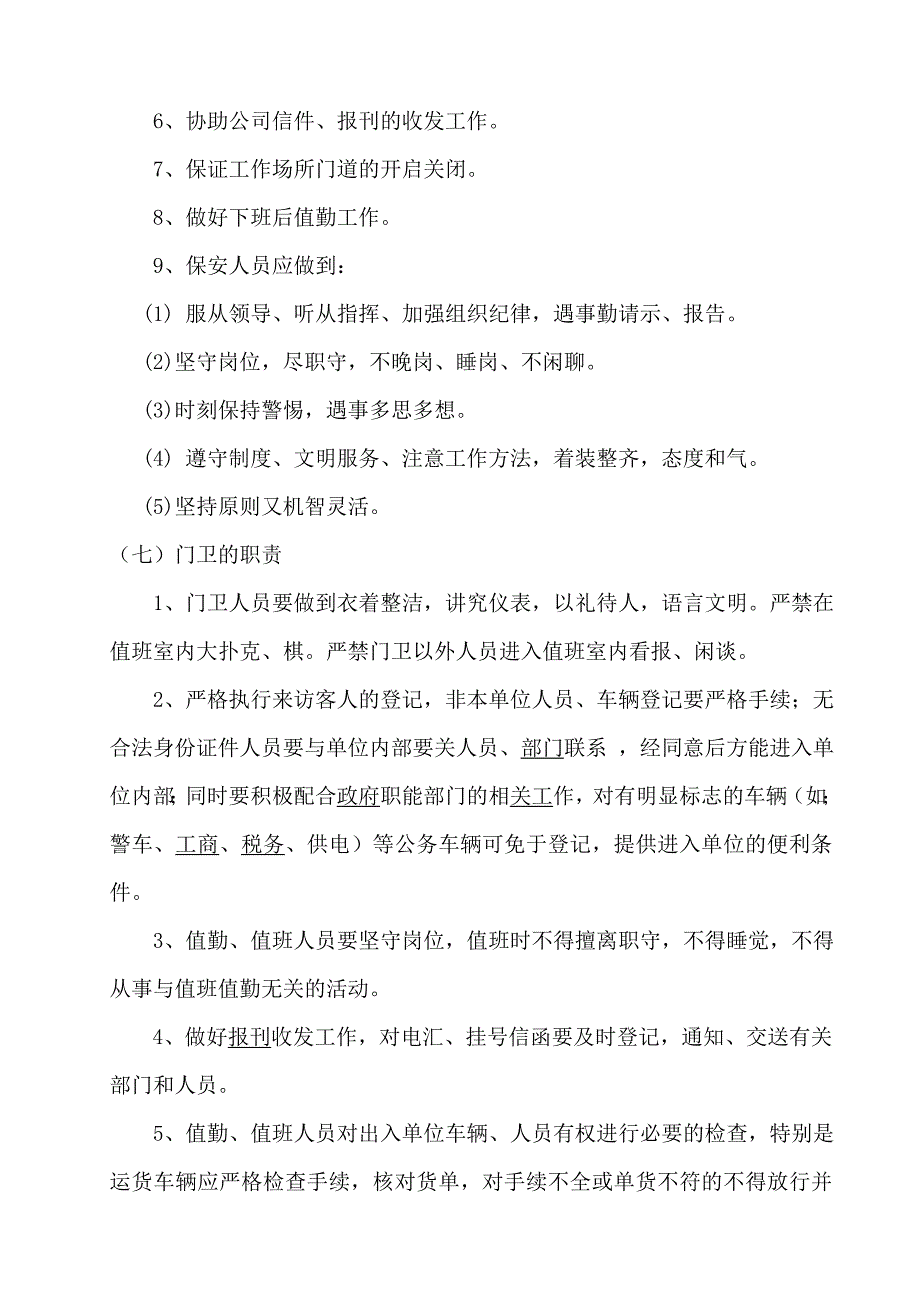 6、协助公司信件、报刊的收发工作。
7、保证工作场所门道的开启关闭。
8、做好下班后值勤工作。
9、保安人员应做到：
(1) 服从领导、听从指挥、加强组织纪律，遇事勤请示、报告。
(2)坚守岗位，尽职守，不晚岗、睡岗、不闲聊。
(3)时刻保持警惕，遇事多思多想。
(4) 遵守制度、文明服务、注意工作方法，着装整齐，态度和气。
(5)坚持原则又机智灵活。
（七）门卫的职责
1、门卫人员要做到衣着整洁，讲究仪表，以礼待人，语言文明。严禁在
值班室内大扑克、棋。严禁门卫以外人员进入值班室内看报、闲谈。
2、严格执行来访客人的登记，非本单位人员、车辆登记要严格手续；无
合法身份证件人员要与单位内部要关人员、部门联系 ，经同意后方能进入单
位内部；同时要积极配合政府职能部门的相关工作，对有明显标志的车辆（如；
警车、工商、税务、供电）等公务车辆可免于登记，提供进入单位的便利条
件。
3、值勤、值班人员要坚守岗位，值班时不得擅离职守，不得睡觉，不得
从事与值班值勤无关的活动。
4、做好报刊收发工作，对电汇、挂号信函要及时登记，通知、交送有关
部门和人员。
5、值勤、值班人员对出入单位车辆、人员有权进行必要的检查，特别是
运货车辆应严格检查手续，核对货单，对手续不全或单货不符的不得放行并